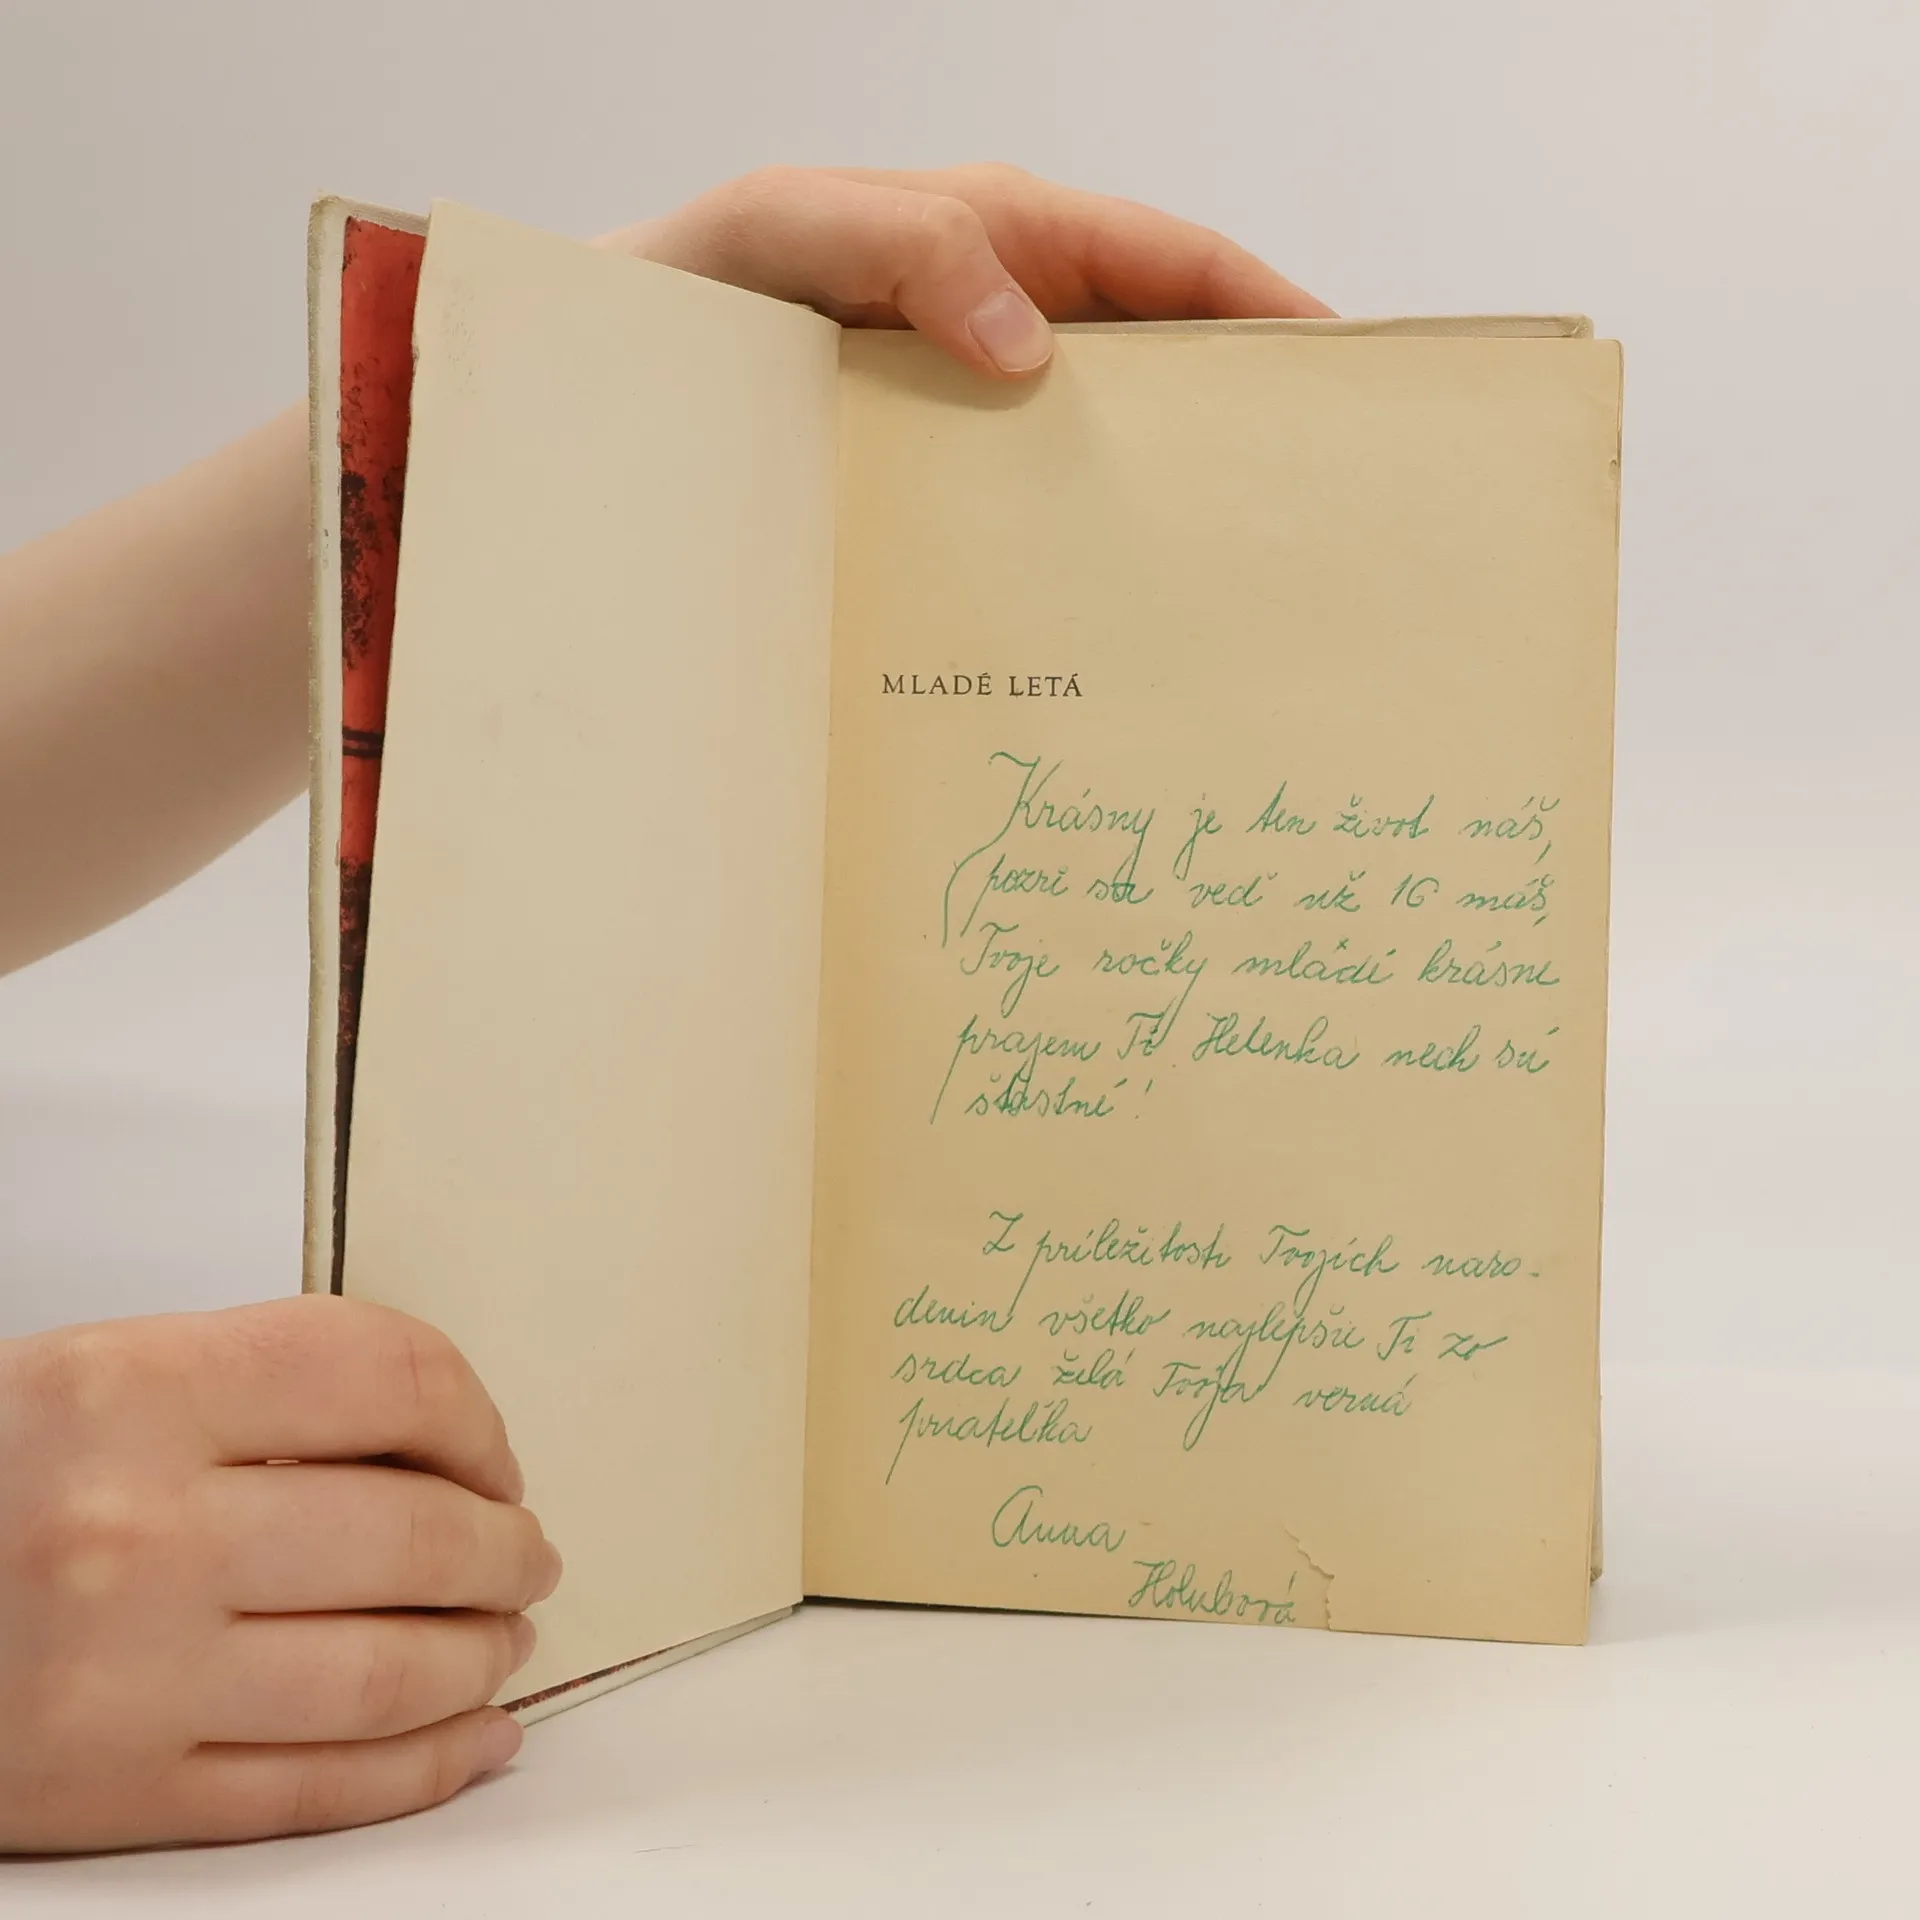 MLADÉ LETÁ
Krásny je ten život náš,
pozri sa veď už 16 máš,
Tvoje ročky mládí krásne
prajem Ti Helenka nech sú
šťastné!
Z príležitosti Tvojich naro-
denin všetko najlepšie Ti zo
srdca želá Tvoja verná
priateľka
Anna
Holubová